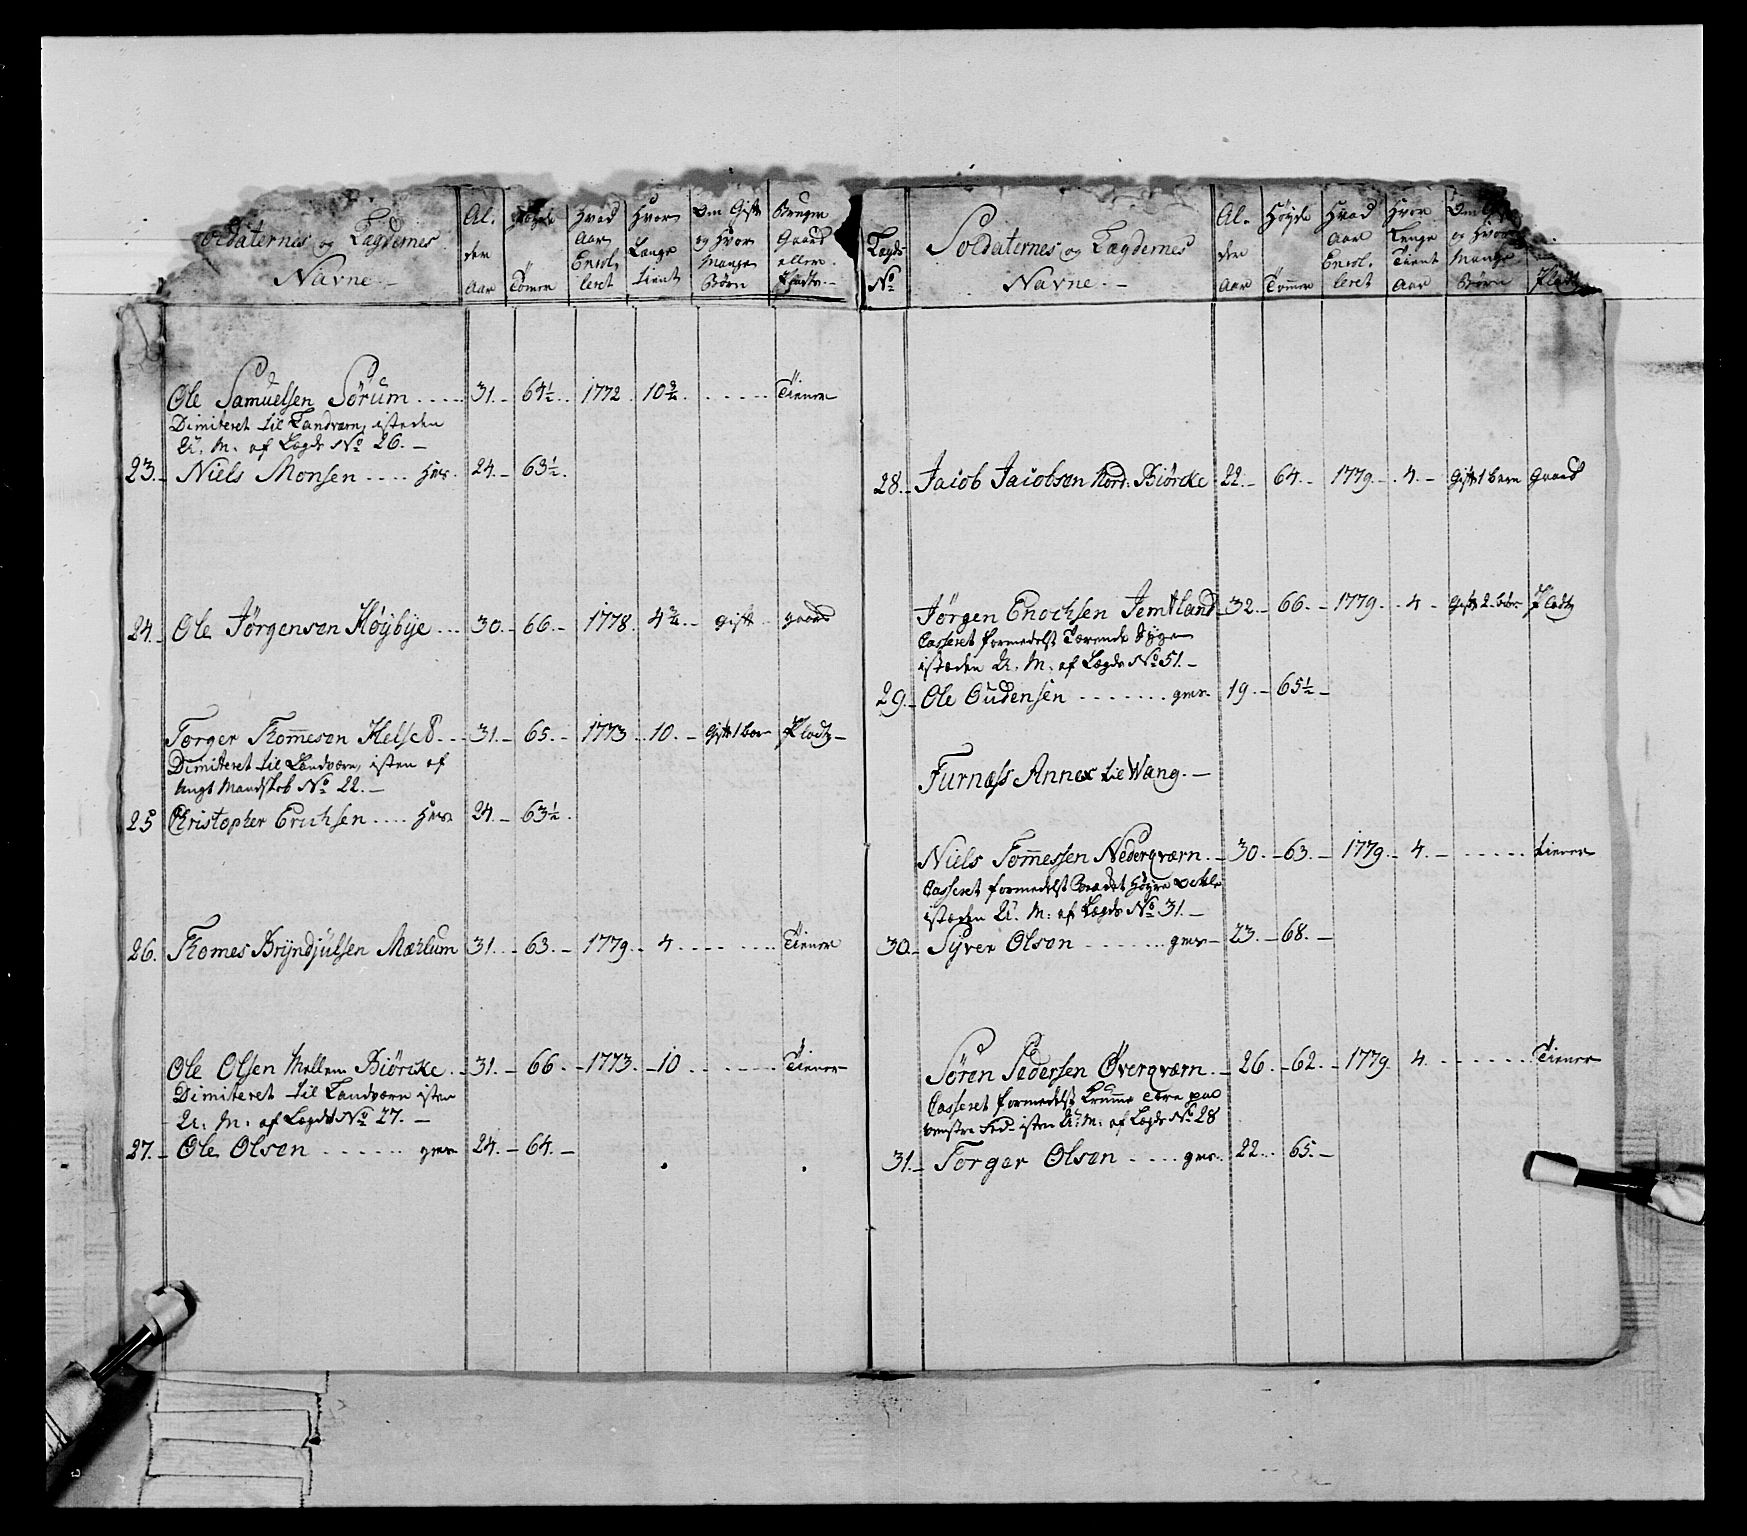 Soldaternes og Lægdernes Navne.
Al- der Aar
Høyde Tomer
Hvad Aar Enrol- leret
Hvor Længe Tient
Om Gift og Hvor Mange Børn
Bruger Gaard eller Pladtz
Ole Samuelsen Sørum ..... 31. 64½. 1772. 10¾ ..... Tiener
Dimiteret til Landværn, isteden
U. M. af Lægds No 26.
23. Niels Monsen .... 24. 63½.
24. Ole Jørgensen Høybye ... 30. 66. 1778. 4¾. gift gaard
Torger Thommesen Helset ... 31. 65. 1773. 10. Gift 1 barn Pladtz
Dimitteret til Landværn, isten af
ungt Mandskab No 22.
25 Christopher Erichsen .... 24. 63½.
26. Thomes Bryndjulsen Mærlum 31. 63. 1779. 4. ..... Tiener
Ole Olsen Mellem Biørcke. 31. 66. 1773. 10 ..... Tiener
Dimiteret til Landværn isten
U. M. af Lægds No 27.
27. Ole Olsen ...... 24. 64.
Lægds No
Soldaternes og Lægdernes Navne.
Al- der Aar
Høyde Tommer
Hvad Aar Enrol- leret
Hvor Længe Tient Aar
Om og Hvor Mange Børn
Pladtz
28. Jacob Jacobsen Nord. Biørcke 22. 64. 1779. 4. Gift 1 barn gaard
Jørgen Enochsen Jemtland 32. 66. 1779. 4 Gift 2. børn Pladtz
Casseret formedelst Tærende Syge
isteden U. M. af Lægds No 51.
29. Ole Oudensen ....... 19. 65½
Furnæss Annex til Wang.
Niels Tommessen Nederqværn. 30. 63. 1779. 4. ..... tiener
Casseret formedelst Høyre
isteden U. M. af Lægds No 31.
30. Syver Olsen ....... 23. 68.
Søren Pedersen Øverqværn. 26. 62. 1779. 4. ...... Tiener
Casseret formedelst Krumme Tære paa
venstre Fod isten U. M. af Lægds No 28
31. Torger Olsen ..... 22. 65.